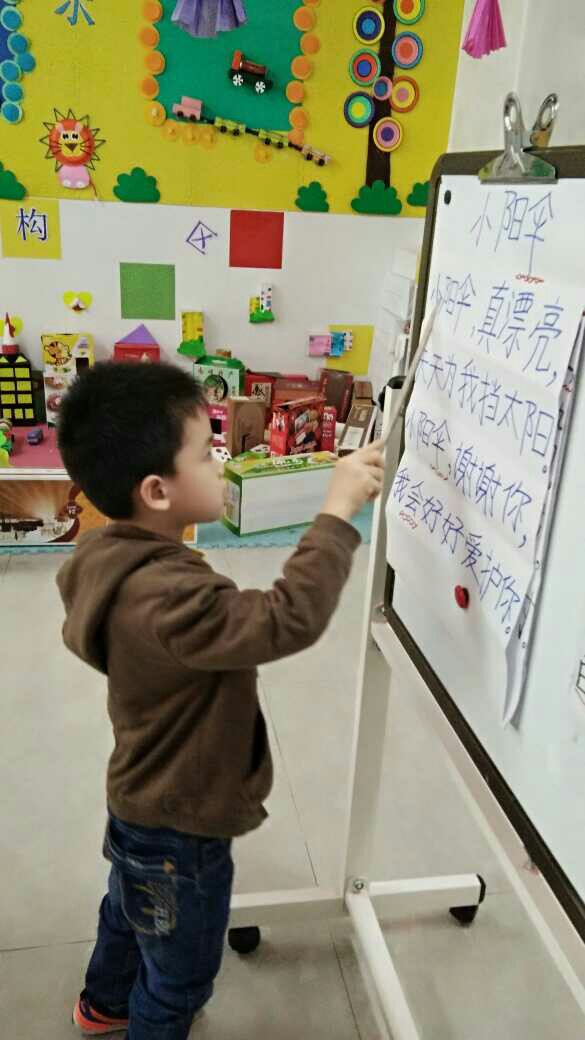 小阳伞
小阳伞,真漂亮,
天天为我挡太阳。
小阳伞,谢谢你,
我会好好爱护你。
构
区